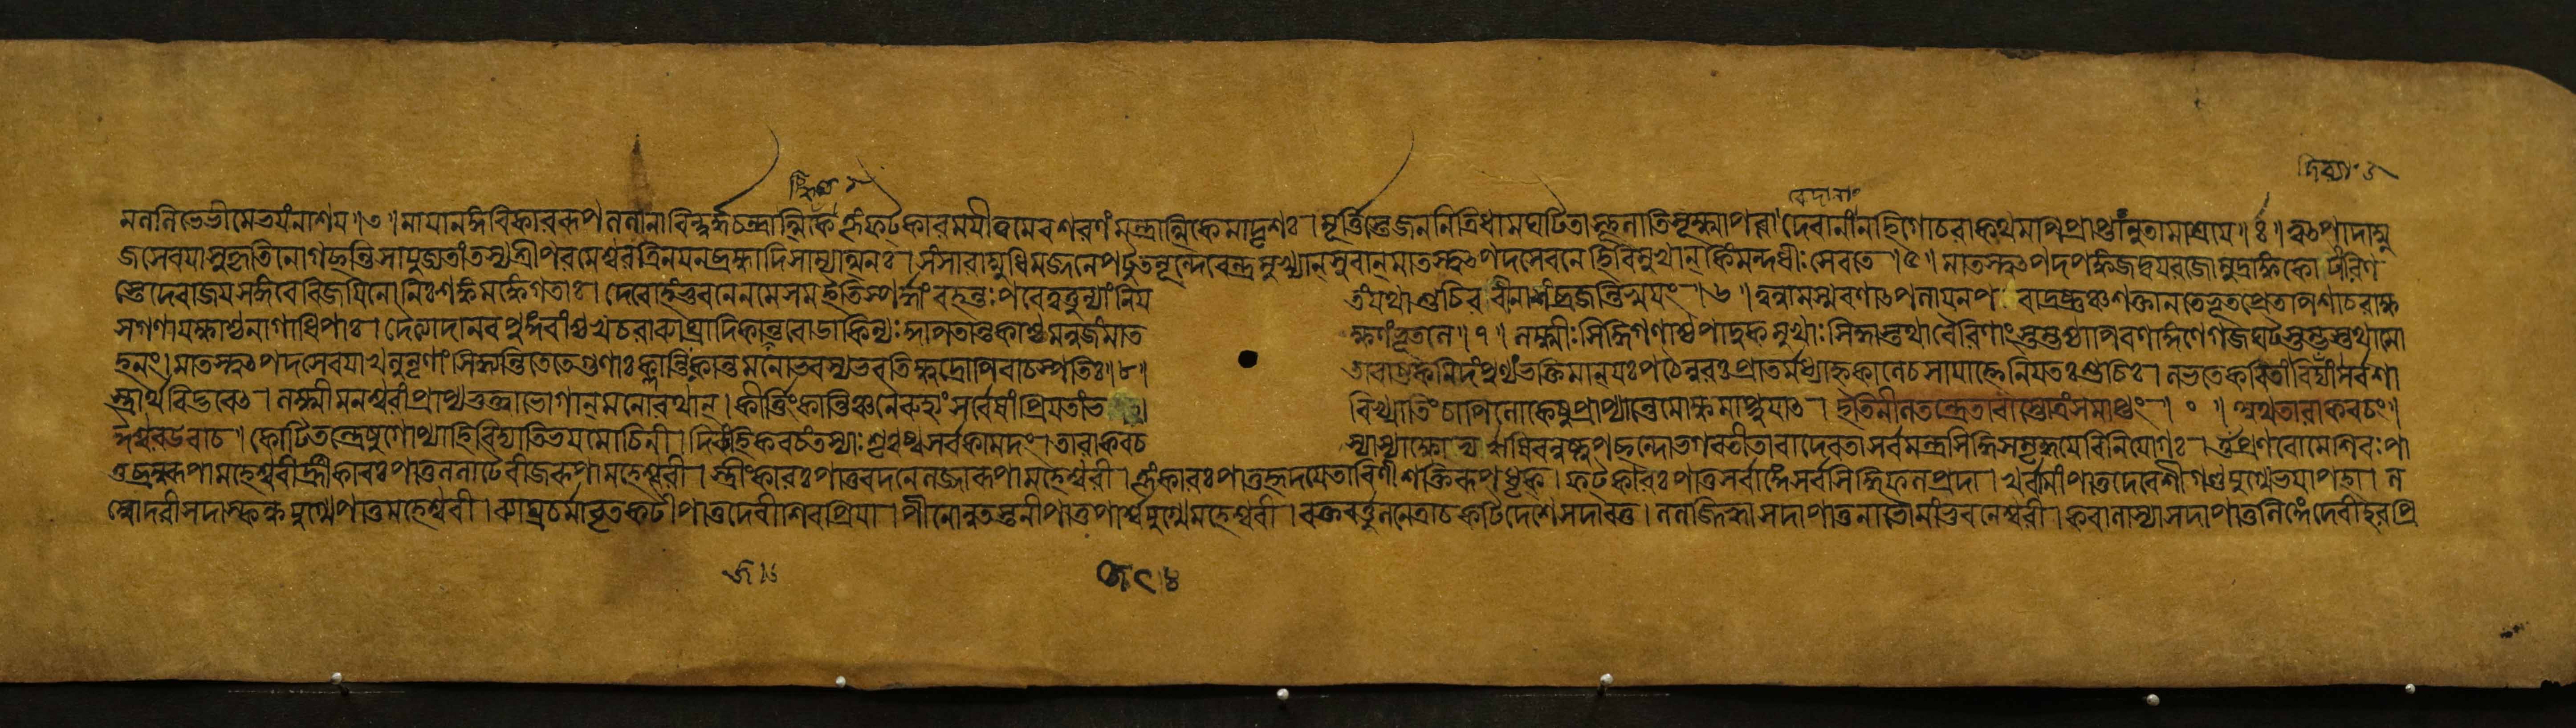 মললিভেভীমেভযংনাশয॥৩॥মাযানঙ্গবিকাররূপললনাবিন্দ্বর্দ্ধচন্দ্রাত্মিকেহুংফট্কারমযীত্বমেবশরণংমন্ত্রাত্মিকেমাদৃশঃ। মূর্ত্তিস্তেজননিত্রিধামঘটিতাস্থূলাতিসূক্ষ্মাপরাদেবানাংনহিগোচরাকথমপিপ্রাপ্তাংনুতামাশ্রযে॥৪॥ত্বত্পাদাম্বু
জসেবযাসুকৃতিনোগচ্ছন্তিসাযুজ্যতাংতস্যশ্রীপরমেশ্বরত্রিনযনব্রহ্মাদিসাম্যাত্মনঃ। সংসারাম্বুধিমজ্জনেপটুতনূন্দেবেন্দ্রমুখ্যান্সুরান্মাতস্ত্বত্পদসেবনেহিবিমুখান্কিংমন্দধীঃসেবতে।৫॥মাতস্ত্বত্পদপঙ্কজদ্বযরজোমুদ্রাঙ্ককোটীরিণ
স্তেদেবাজযসঙ্গরেবিজযিনোনিঃশঙ্কমঙ্কেগতাঃ। দেবোহংভুবনেনমেসমইতিস্পর্দ্ধাংবহন্তঃপরেত্বত্তুল্যাংনিয তংযথাশুচিরবীনাশংব্রজন্তিস্বযং॥৬॥ত্বন্নামস্মরণাত্পলাযনপরাদ্রষ্টুঞ্চশক্তানতেভূতপ্রেতপিশাচরাক্ষ
সগণাযক্ষাশ্চনাগাধিপাঃ। দৈত্যাদানবপুঙ্গবাশ্চখচরাব্যাঘ্রাদিকাজন্তবোডাকিন্যঃকুপিতান্তকাশ্চমনুজংমাত ক্ষণংভূতলে॥৭॥লক্ষ্মীঃসিদ্ধিগণাশ্চপাদুকমুখাঃসিদ্ধাস্তথাবৈরিণাংস্তম্ভশ্চাপিবরাঙ্গনেগজঘটাস্তম্ভস্তথামো
হনং।মাতস্ত্বত্পদসেবযাখলুনৃণাংসিদ্ধ্যন্তিতেতেগুণাঃকান্তিঃকান্তমনোভবস্যভবতিক্ষুদ্রোপিবাচস্পতিঃ॥৮॥ তারাষ্টকমিদংপুণ্যংভক্তিমান্যঃপঠেন্নরঃপ্রাতর্মধ্যাহ্নকালেচসাযাহ্নেনিযতঃশুচিঃ। লভতেকবিতাংবিদ্যাংসর্বশা
স্ত্রার্থবিদ্ভবেত্। লক্ষ্মীমনশ্বরাংপ্রাপ্যভুক্ত্বাভোগান্মনোরথান্। কীর্ত্তিংকান্তিঞ্চনৈরুজ্যংসর্বেষাংপ্রিযতাংব্র বিখ্যাতিংচাপিলোকেষুপ্রাপ্যান্তেমোক্ষমাপ্নুযাত্। ইতিনীলতন্ত্রেতারাস্তোত্রংসমাপ্তং। ০ ॥ অথতারাকবচং॥
ঈশ্বরউবাচ। কোটিতন্ত্রেষুগোপ্যাহিবিদ্যাতিভযমোচিনী। দিব্যংহিকবচংতস্যাঃশৃণুষ্বসর্বকামদং। তারাকবচ স্যাস্যাক্ষোভ্যঋষিস্ত্রিষ্টুপ্ছন্দোভগবতীতারাদেবতাসর্বমন্ত্রসিদ্ধিসমৃদ্ধযেবিনিযোগঃ। ওঁপ্রণবোমেশিরঃপা
তুব্রহ্মরূপামহেশ্বরী।হ্রীংকারঃপাতুললাটেবীজরূপামহেশ্বরী। স্ত্রীংকারঃপাতুবদনেলজ্জারূপামহেশ্বরী। হুংকারঃপাতুহৃদযেতারিণীশক্তিরূপধৃক্। ফট্কারঃপাতুসর্বাঙ্গেসর্বসিদ্ধিফলপ্রদা। খর্বামাংপাতুদেবেশীগণ্ডযুগ্মেভযাপহা। ল
ম্বোদরীসদাস্কন্ধযুগ্মেপাতুমহেশ্বরী। ব্যাঘ্রচর্মাবৃতকটীপাতুদেবীশিবপ্রিযা। পীনোন্নতস্তনীপাতুপার্শ্বযুগ্মেমহেশ্বরী। রক্তবর্ত্তুলনেত্রাচকটিদেশেসদাবতু। ললজ্জিহ্বাসদাপাতুনাভৌমাংভুবনেশ্বরী। করালাস্যাসদাপাতুলিঙ্গেদেবীহরপ্রি